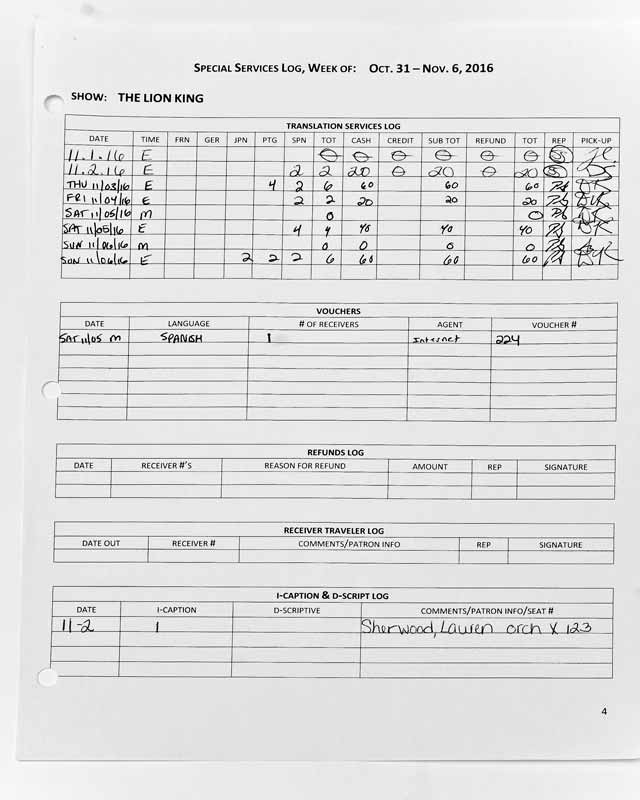 SPECIAL SERVICES LOG, WEEK OF: OCT. 31 – NOV. 6, 2016
SHOW: THE LION KING
TRANSLATION SERVICES LOG
DATE TIME FRN GER JPN PTG SPN TOT CASH CREDIT SUB TOT REFUND TOT REP PICK-UP
11.1.16 E 0 0 0 0 0 0
11.2.16 E 2 2 20 0 20 0 20
THU 11/03/16 E 4 2 6 60 60 60
FRI 11/04/16 E 2 2 20 20 20
SAT 11/05/16 M 0 0
SAT 11/05/16 E 4 4 40 40 40
SUN 11/06/16 M 0 0 0 0
SUN 11/06/16 E 2 2 2 6 60 60 60
VOUCHERS
DATE LANGUAGE # OF RECEIVERS AGENT VOUCHER #
SAT 11/05 M SPANISH 1 Internet 224
REFUNDS LOG
DATE RECEIVER #'S REASON FOR REFUND AMOUNT REP SIGNATURE
RECEIVER TRAVELER LOG
DATE OUT RECEIVER # COMMENTS/PATRON INFO REP SIGNATURE
I-CAPTION & D-SCRIPT LOG
DATE I-CAPTION D-SCRIPTIVE COMMENTS/PATRON INFO/SEAT #
11-2 1 Sherwood, Lauren orch X 123
4